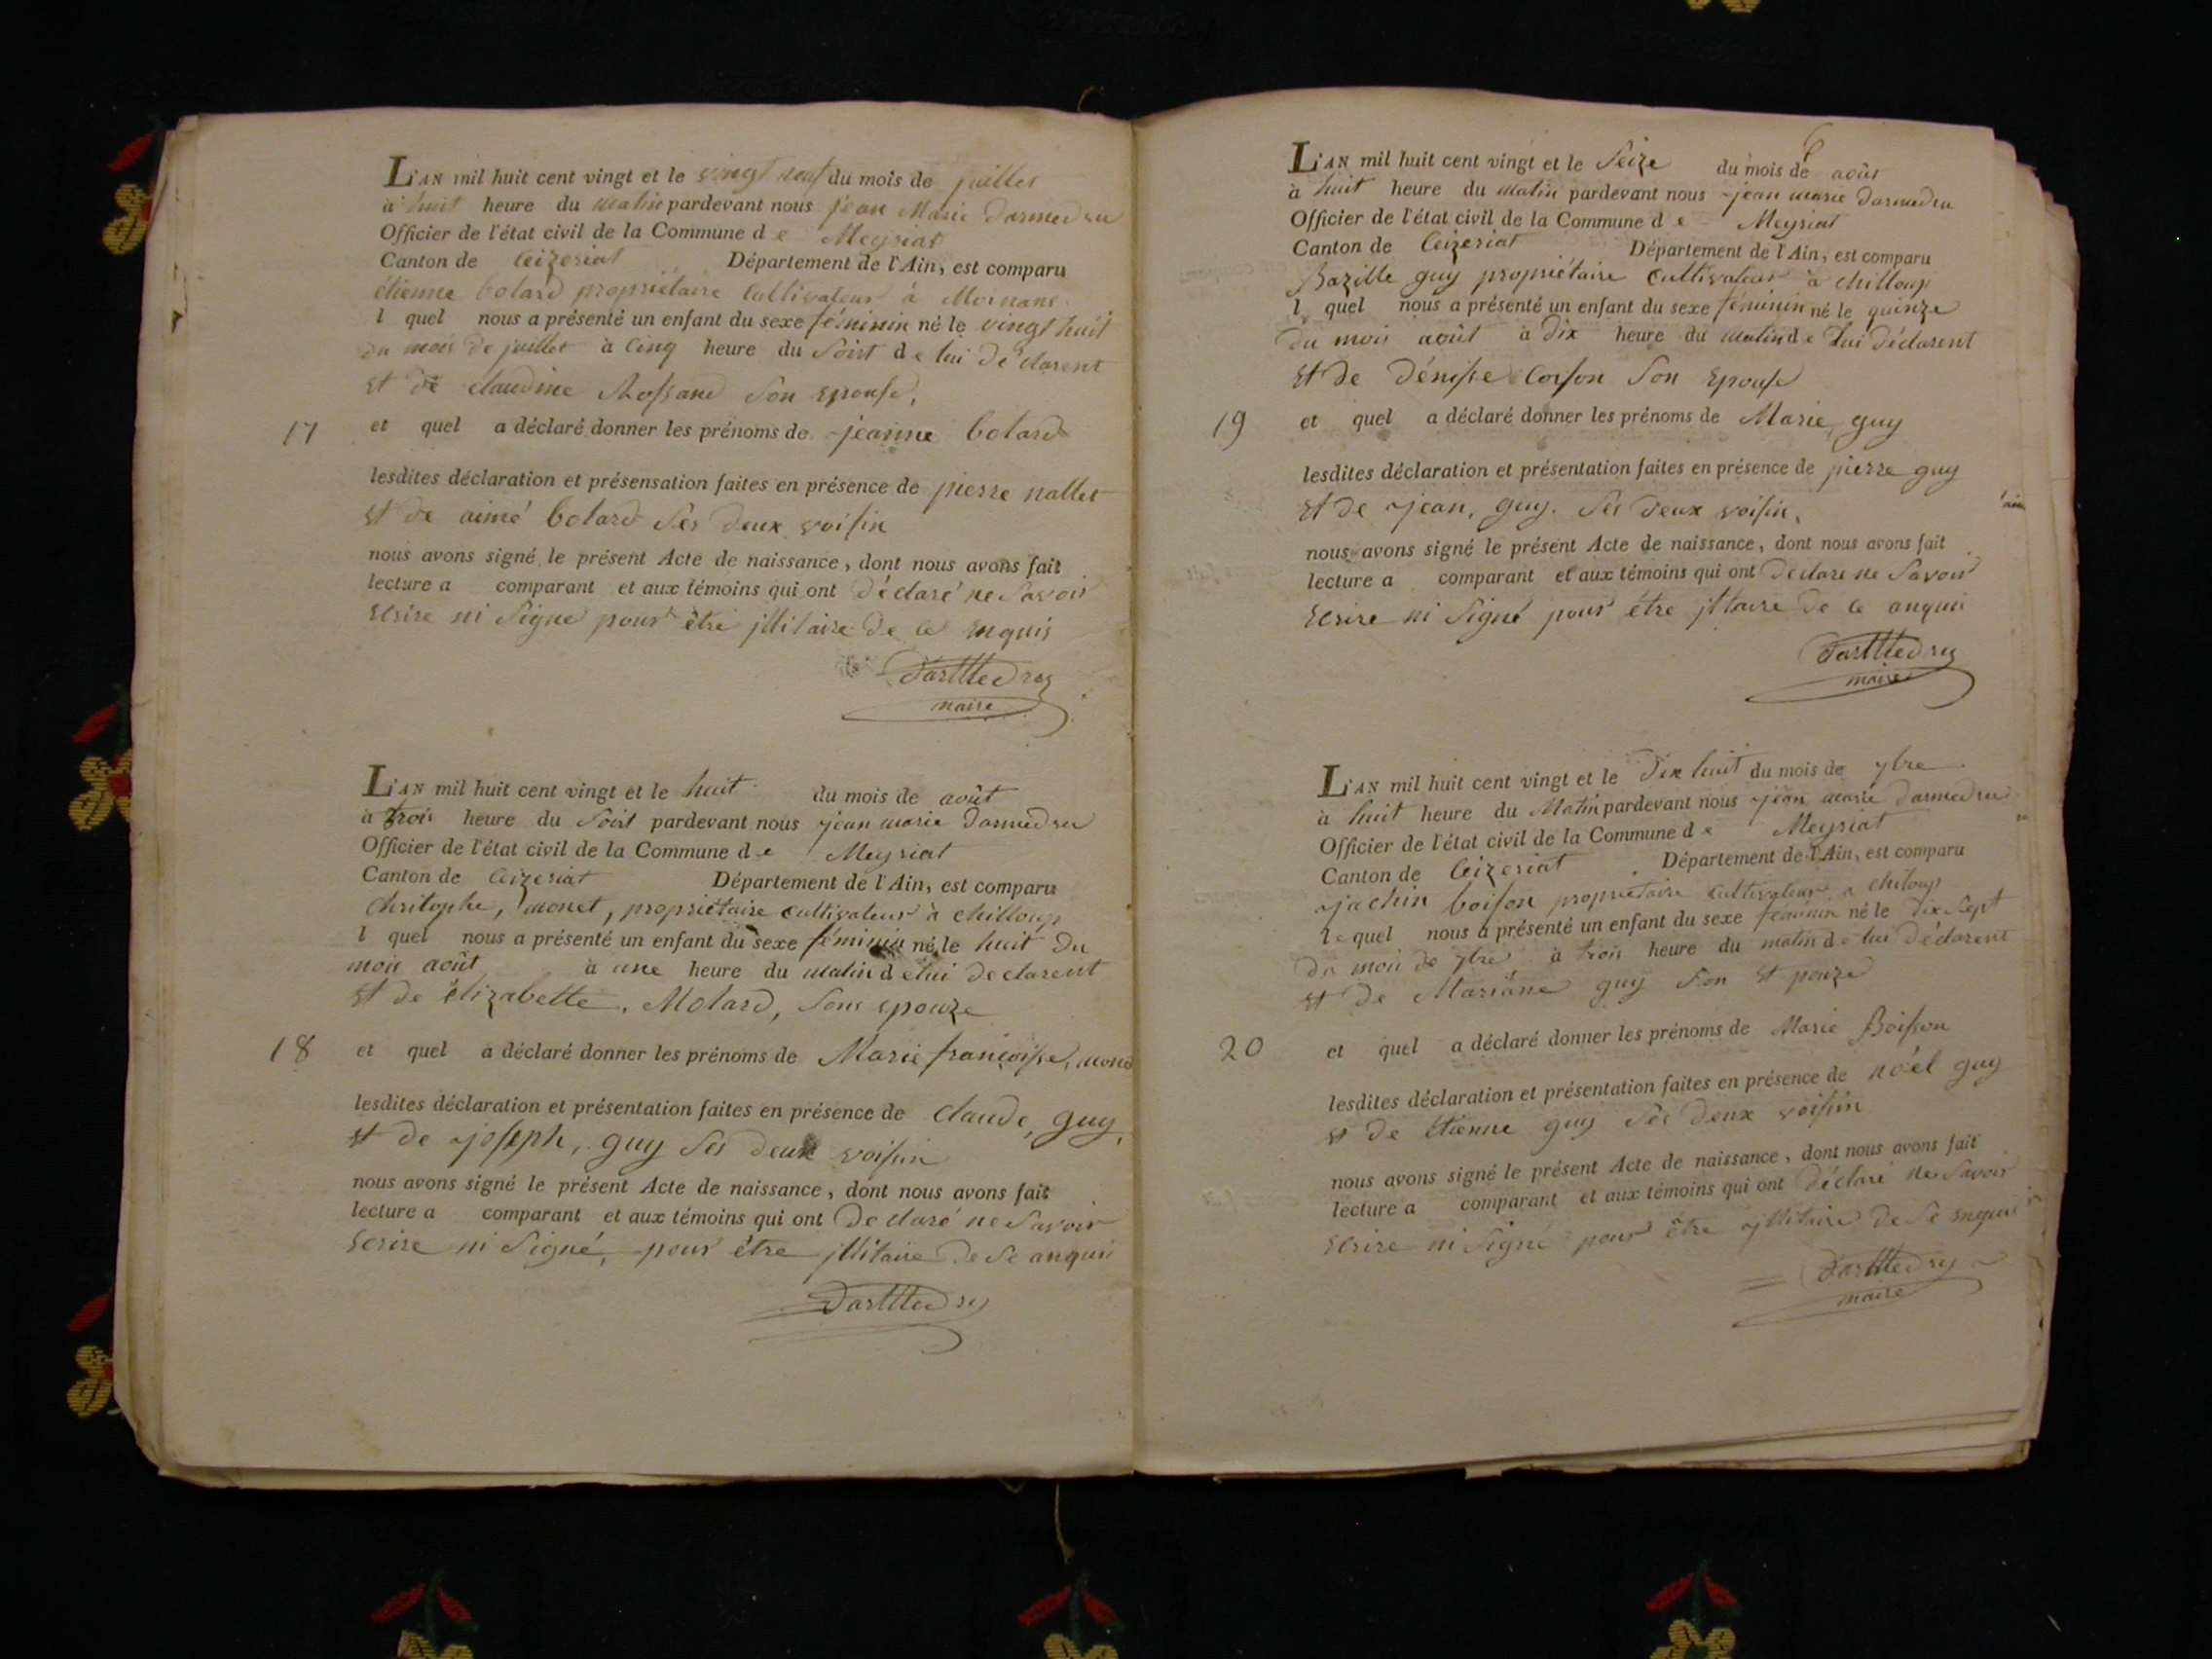 L'AN mil huit cent vingt et le vingt neuf du mois de juillet
à huit heure du matin pardevant nous jean Marie darmedru
Officier de l'état civil de la Commune d e Meyriat
Canton de Ceizeriat Département de l'Ain, est comparu
étienne bolard propriétaire Cultivateur à Mornane
l quel nous a présenté un enfant du sexe féminin né le vingt huit
du mois de juillet à Cinq heure du Soirt de lui déclarent
et de claudine Rossand Son Epouse,
17 et quel a déclaré donner les prénoms de jeanne bolard
lesdites déclaration et présensation faites en présence de pierre nallet
et de aimé bolard Ses deux voisin
nous avons signé le présent Acte de naissance, dont nous avons fait
lecture a comparant et aux témoins qui ont déclaré ne Savoir
Ecrire ni Signe pour être jllitaire de ce Enquis
DarMedru
maire
L'AN mil huit cent vingt et le huit du mois de août
à trois heure du Soirt pardevant nous jean marie darmedru
Officier de l'état civil de la Commune d e Meyriat
Canton de Ceizeriat Département de l'Ain, est comparu
Chritophe, monet, propriétaire Cultivateur à Chilloup
l quel nous a présenté un enfant du sexe féminin né le huit du
mois août à une heure du matin de lui declarent
et de élizabette, Molard, Sont epouze
18 et quel a déclaré donner les prénoms de Marie françoisse, mone
lesdites déclaration et présentation faites en présence de Claude, guy,
et de joseph, guy Ses deux voisin
nous avons signé le présent Acte de naissance, dont nous avons fait
lecture a comparant et aux témoins qui ont declaré ne Savoir
Ecrire ni Signé, pour être jllitaire de Se anquis
DarMedru
6
L'AN mil huit cent vingt et le Seize du mois de août
à huit heure du matin pardevant nous jean marie darmedru
Officier de l'état civil de la Commune d e Meyriat
Canton de Ceizeriat Département de l'Ain, est comparu
Bazille guy propriétaire Cultivateur à Chilloup
l quel nous a présenté un enfant du sexe féminin né le quinze
du mois août à dix heure du matin de Lui déclarent
et de dénisse Coison Son Epouse
19 et quel a déclaré donner les prénoms de Marie guy
lesdites déclaration et présentation faites en présence de pierre guy
et de jean, guy. Ses deux voisin,
nous avons signé le présent Acte de naissance, dont nous avons fait
lecture a comparant et aux témoins qui ont declare ne Savoir
Ecrire ni Signé pour être jlltaire de ce anquis
DarMedru
maire
L'AN mil huit cent vingt et le dix huit du mois de 7bre
à huit heure du Matin pardevant nous jean marie darmedru
Officier de l'état civil de la Commune d e Meyriat
Canton de Ceizeriat Département de l'Ain, est comparu
jachin boison propriétaire Cultivateur a chiloup
le quel nous a présenté un enfant du sexe féminin né le dix Sept
du mois de 7bre à trois heure du matin de lui déclarent
et de Mariane guy Son Et pouze
20 et quel a déclaré donner les prénoms de Marie Boisson
lesdites déclaration et présentation faites en présence de noél guy
et de étienne guy Ses deux voisin
nous avons signé le présent Acte de naissance, dont nous avons fait
lecture a comparant et aux témoins qui ont déclaré ne Savoir
Ecrire ni Signé pour être jllitaire de Se Enquis
DarMedru
maire